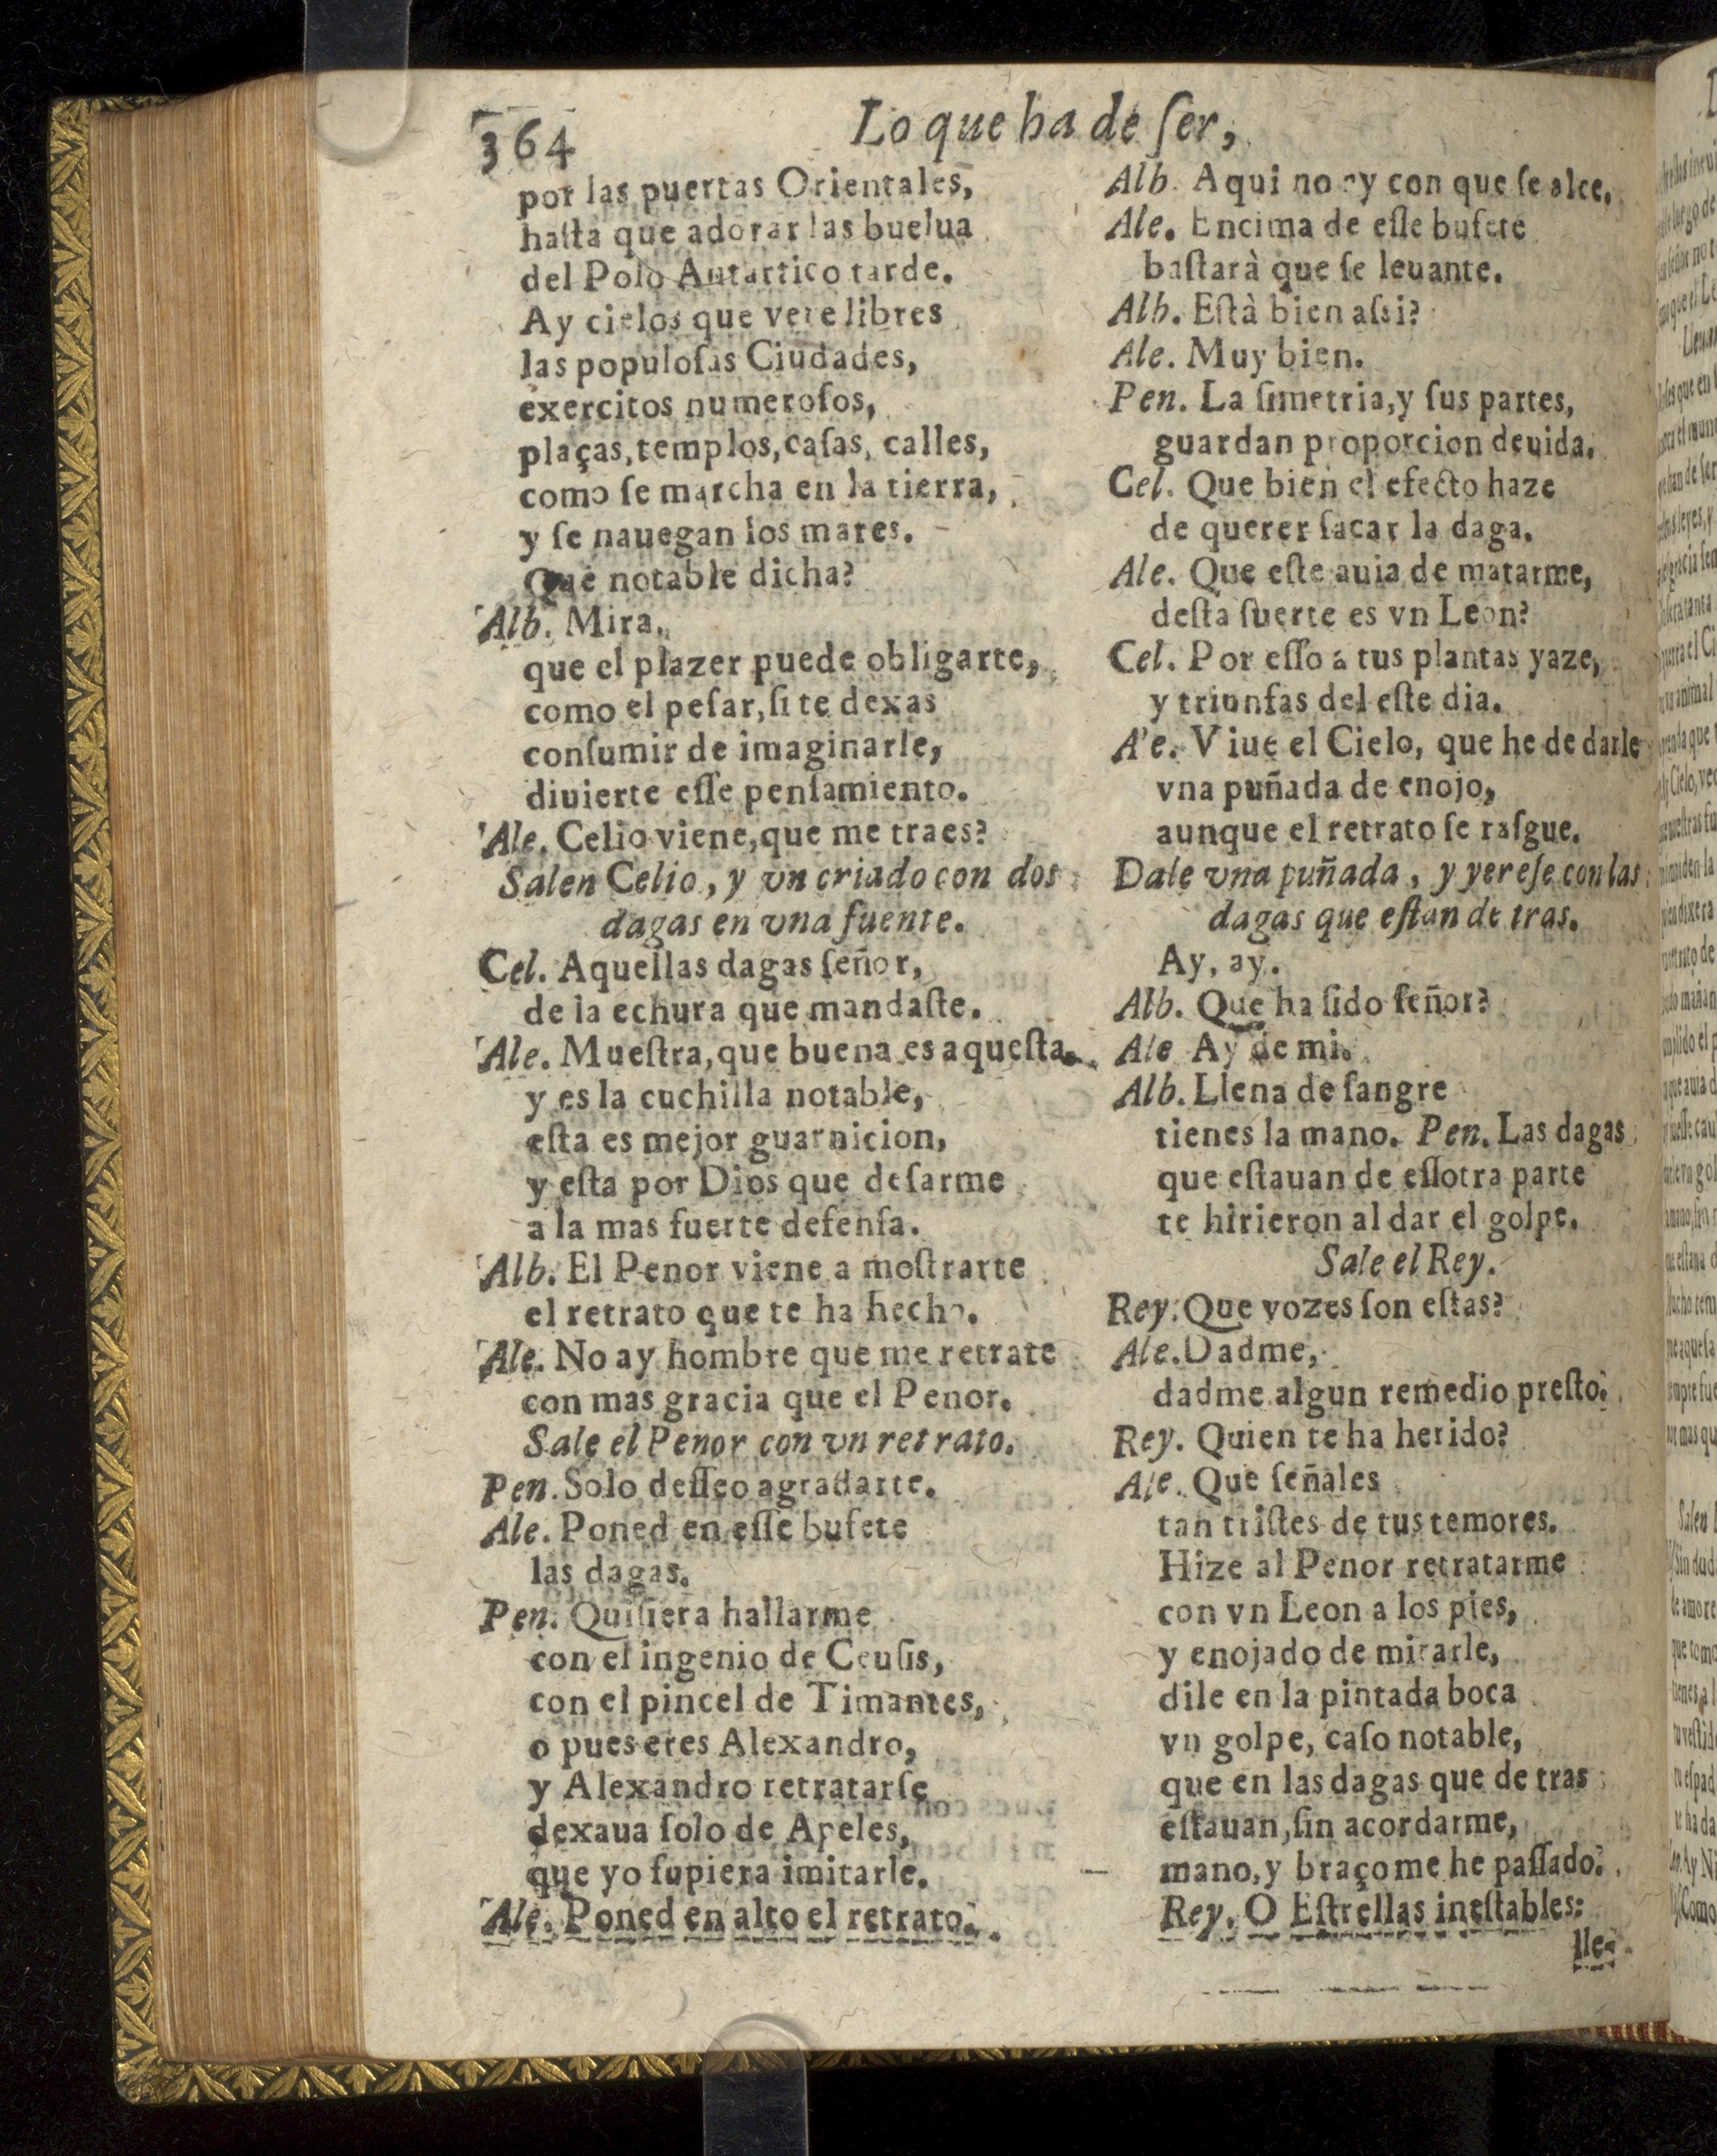 364
Lo que ha de ſer,
por las puertas Orientales,
haſta que adorar las buelua
del Polo Antartico tarde.
Ay cielos que vere libres
las populoſas Ciudades,
exercitos numeroſos,
plaças, templos, caſas, calles,
como ſe marcha en la tierra,
y ſe nauegan los mares.
Que notable dicha?
Alb. Mira,
que el plazer puede obligarte,
como el peſar, ſi te dexas
conſumir de imaginarle,
diuierte eſſe penſamiento.
Ale. Celio viene, que me traes?
Salen Celio, y vn criado con dos
dagas en vna fuente.
Cel. Aquellas dagas ſeñor,
de la echura que mandaſte.
Ale. Mueſtra, que buena es aqueſta,
y es la cuchilla notable,
eſta es mejor guarnicion,
y eſta por Dios que deſarme
a la mas fuerte defenſa.
Alb. El Penor viene a moſtrarte
el retrato que te ha hecho.
Ale. No ay hombre que me retrate
con mas gracia que el Penor.
Sale el Penor con vn retrato.
Pen. Solo deſſeo agradarte.
Ale. Poned en eſſe bufete
las dagas.
Pen. Quiſiera hallarme
con el ingenio de Ceuſis,
con el pincel de Timantes,
o pues eres Alexandro,
y Alexandro retratarſe
dexaua ſolo de Apeles,
que yo ſupiera imitarle.
Ale. Poned en alto el retrato.
Alb. Aqui no ay con que ſe alce.
Ale. Encima de eſſe bufete
baſtarà que ſe leuante.
Alb. Eſtà bien aſsi?
Ale. Muy bien.
Pen. La ſimetria, y ſus partes,
guardan proporcion deuida.
Cel. Que bien el efecto haze
de querer ſacar la daga.
Ale. Que eſte auia de matarme,
deſta ſuerte es vn Leon?
Cel. Por eſſo a tus plantas yaze,
y triunfas del eſte dia.
A'e. Viue el Cielo, que he de darle
vna puñada de enojo,
aunque el retrato ſe raſgue.
Dale vna puñada, y yereſe con las
dagas que eſtan de tras.
Ay, ay.
Alb. Que ha ſido ſeñor?
Ale Ay de mi.
Alb. Llena de ſangre
tienes la mano. Pen. Las dagas
que eſtauan de eſſotra parte
te hirieron al dar el golpe.
Sale el Rey.
Rey. Que vozes ſon eſtas?
Ale. Dadme,
dadme algun remedio preſto.
Rey. Quien te ha herido?
Ale. Que ſeñales
tan triſtes de tus temores.
Hize al Penor retratarme
con vn Leon a los pies,
y enojado de mirarle,
dile en la pintada boca
vn golpe, caſo notable,
que en las dagas que de tras
eſtauan, ſin acordarme,
mano, y braço me he paſſado.
Rey. O Eſtrellas ineſtables:
lle-